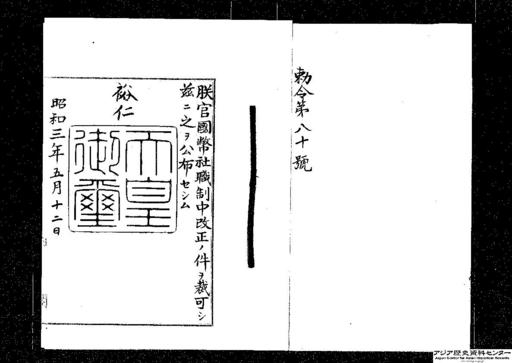 勅令第八十號
朕官國幣社職制中改正ノ件ヲ裁可シ
茲ニ之ヲ公布セシム
裕仁
天皇
御璽
昭和三年五月十二日
アジア歴史資料センター
Japan Center for Asian Historical Records